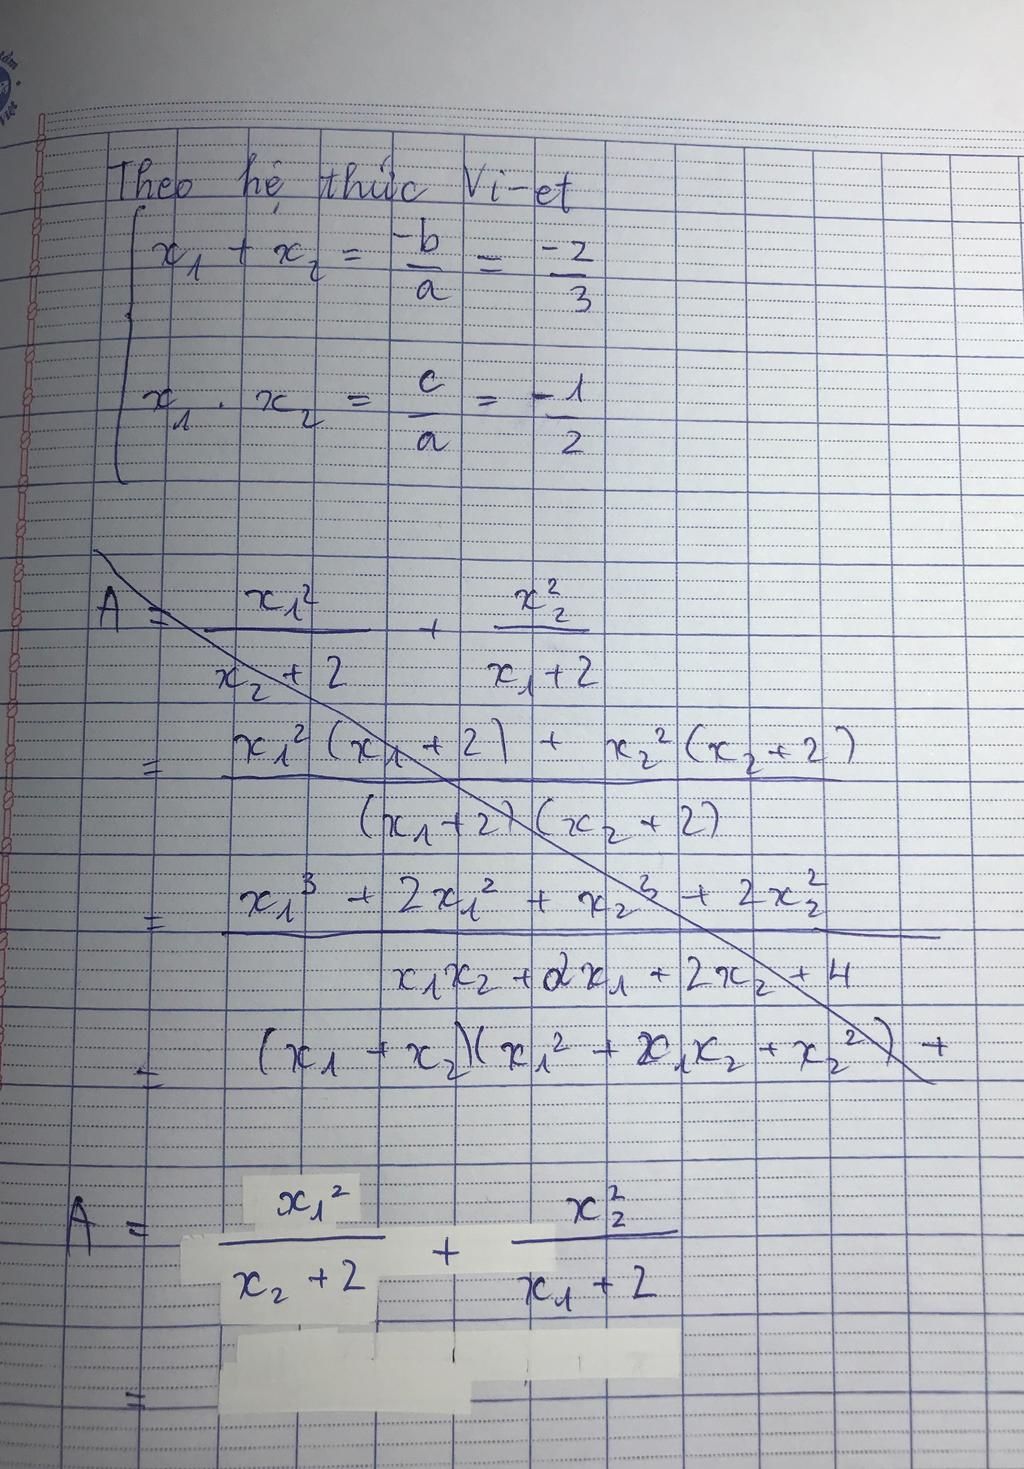 Theo hệ thức Vi-et
x₁ + x₂ = -b/a = -2/3
x₁ . x₂ = c/a = -1/2
A = x₁²/(x₂ + 2) + x₂²/(x₁ + 2)
= (x₁²(x₁ + 2) + x₂²(x₂ + 2))/((x₁ + 2)(x₂ + 2))
= (x₁³ + 2x₁² + x₂³ + 2x₂²)/(x₁x₂ + 2x₁ + 2x₂ + 4)
= (x₁ + x₂)(x₁² + x₁x₂ + x₂²) +
A = x₁²/(x₂ + 2) + x₂²/(x₁ + 2)
=